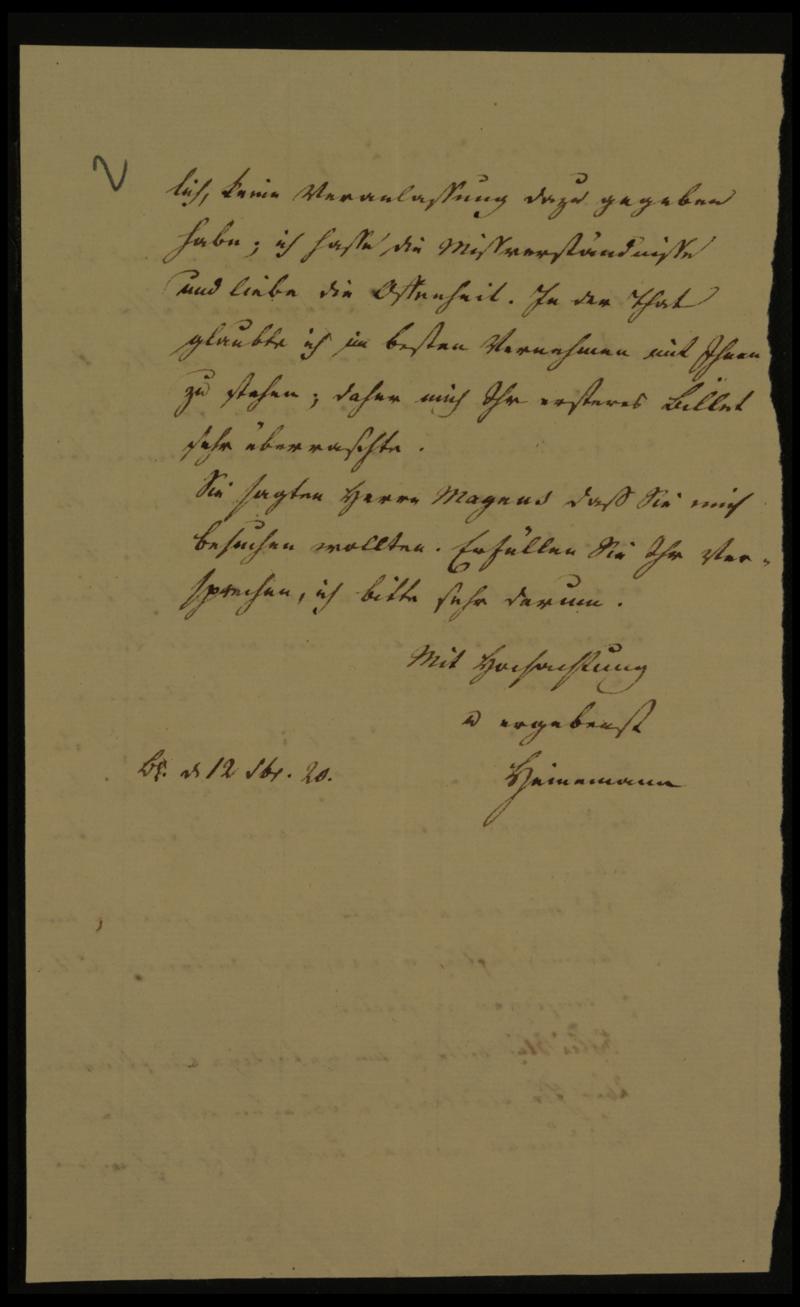 2
lich, keine Veranlassung dazu gegeben
habe; ich hasse die Missverständnisse
und liebe die Offenheit. In der That
glaubte ich im besten Vernehmen mit Ihnen
zu stehen; daher mich Ihr ersteres Billet
sehr überraschte.
Sie sagten Herrn Magend daß Sie mich
besuchen wollten. Erfüllen Sie Ihr Ver-
sprechen, ich bitte sehr darum.
Mit Hochachtung
u ergebenst
Heinemann
d 12 20.